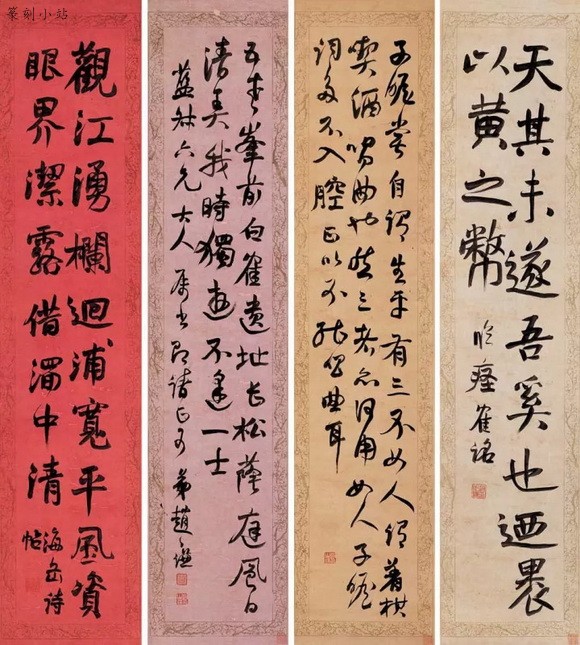 篆刻小站
天其未遂吾奚也迺裹
以黄之幣
臨瘞寉銘
子瞻嘗自謂生平有三不如人謂著棋
喫酒唱曲也然三者亦何用如人子瞻
詞多不入腔正以不能唱曲耳
五老峯前白寉遺址長松蔭庭風日
清美我時獨遊不逢一士
藍叔六兄大人屬書即請正可 弟趙之謙
觀江湧欄迴浦寬平風資
眼界潔露借濁中清
海岳詩
帖